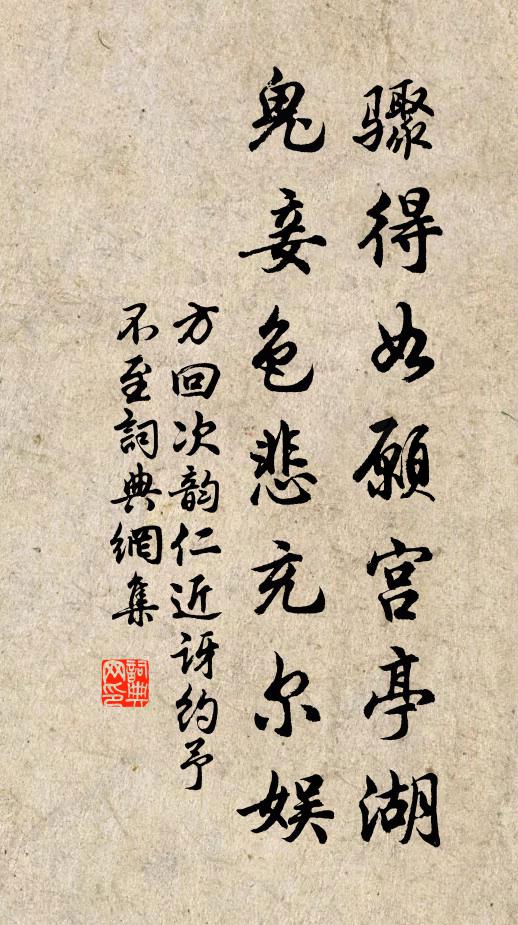 骤得如願宫亭湖
鬼妾色悲充尔娱
方回次韵仁近讶约予
不至詞典網集
詞典
网印